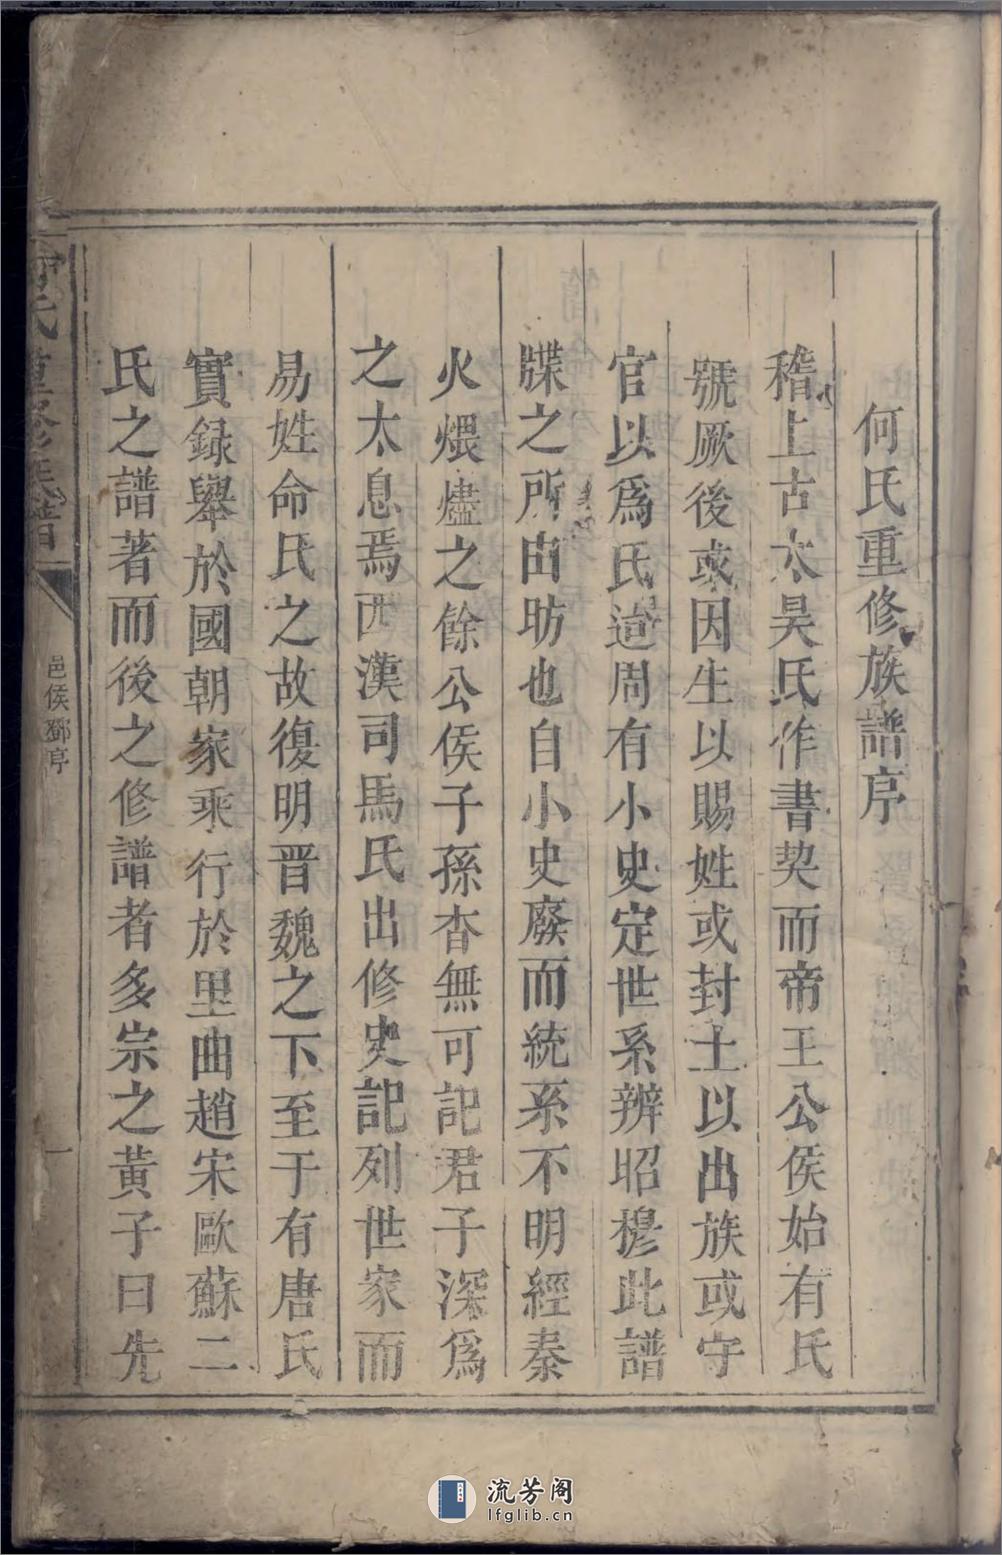 何氏重修族譜序
稽上古太昊氏作書契而帝王公侯始有氏
號厥後或因生以賜姓或封土以出族或守
官以爲氏迨周有小史定世系辨昭穆此譜
牒之所由昉也自小史廢而統系不明經秦
火煨燼之餘公侯子孫杳無可記君子深爲
之太息焉西漢司馬氏出修史記列世家而
易姓命氏之故復明晋魏之下至于有唐氏
實録舉於國朝家乘行於里曲趙宋歐蘇二
氏之譜著而後之修譜者多宗之黃子曰先
何氏重修族譜
邑侯鄧序
一
流芳阁
lfglib.cn